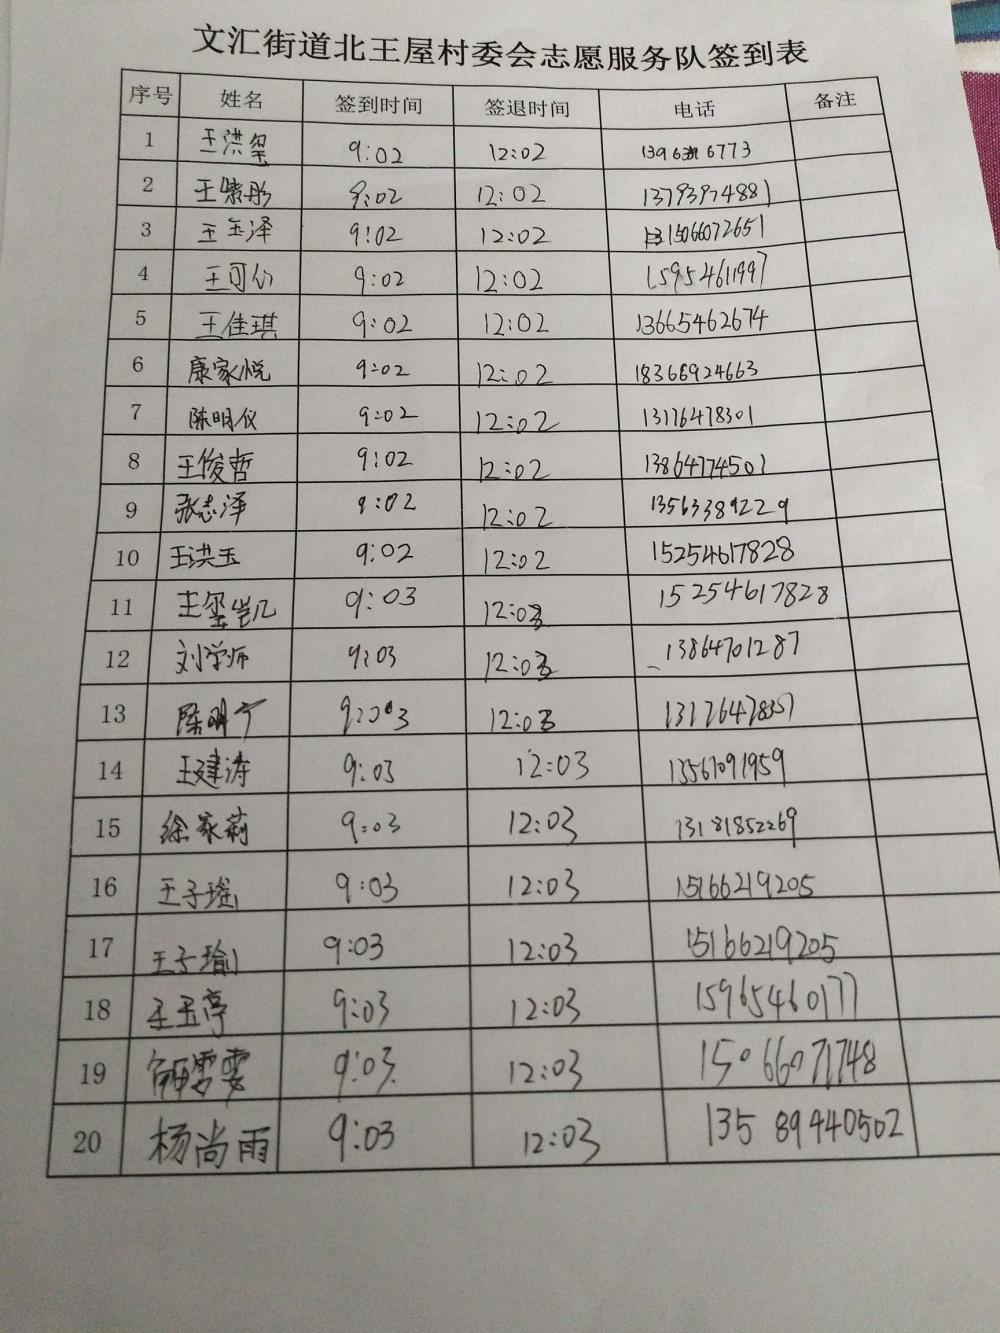 文汇街道北王屋村委会志愿服务队签到表
序号 姓名 签到时间 签退时间 电话 备注
1 王洪玺 9:02 12:02
2 王 9:02 12:02 13793974881
3 王玉泽 9:02 12:02 15066072651
4 王可 9:02 12:02 15954611997
5 王佳琪 9:02 12:02 13665462674
6 康家悦 9:02 12:02 18366924663
7 陈明仪 9:02 12:02 13176478301
8 王俊哲 9:02 12:02 13864774501
9 张志泽 9:02 12:02 13563389229
10 王洪玉 9:02 12:02 15254617828
11 王玺岂几 9:03 12:03 15254617828
12 刘学师 9:03 12:03 13864701287
13 陈明 9:03 12:03
14 王建涛 9:03 12:03 13561091959
15 徐家莉 9:03 12:03 13181852269
16 王子瑶 9:03 12:03 15166219205
17 王子瑜 9:03 12:03 15166219205
18 王玉亭 9:03 12:03 15965460177
19 9:03 12:03 15066071748
20 杨尚雨 9:03 12:03 13589440502